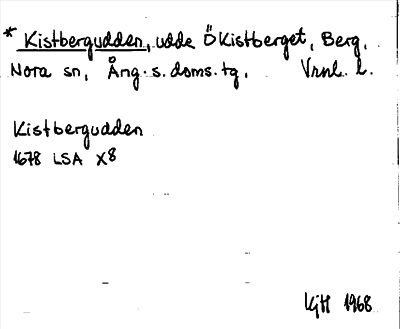 * Kistbergudden, udde Ö Kistberget, Berg,
Nora sn, Ång. s. doms. tg. Vrml. l.
Kistbergudden
1678 LSA X8
KjH 1968